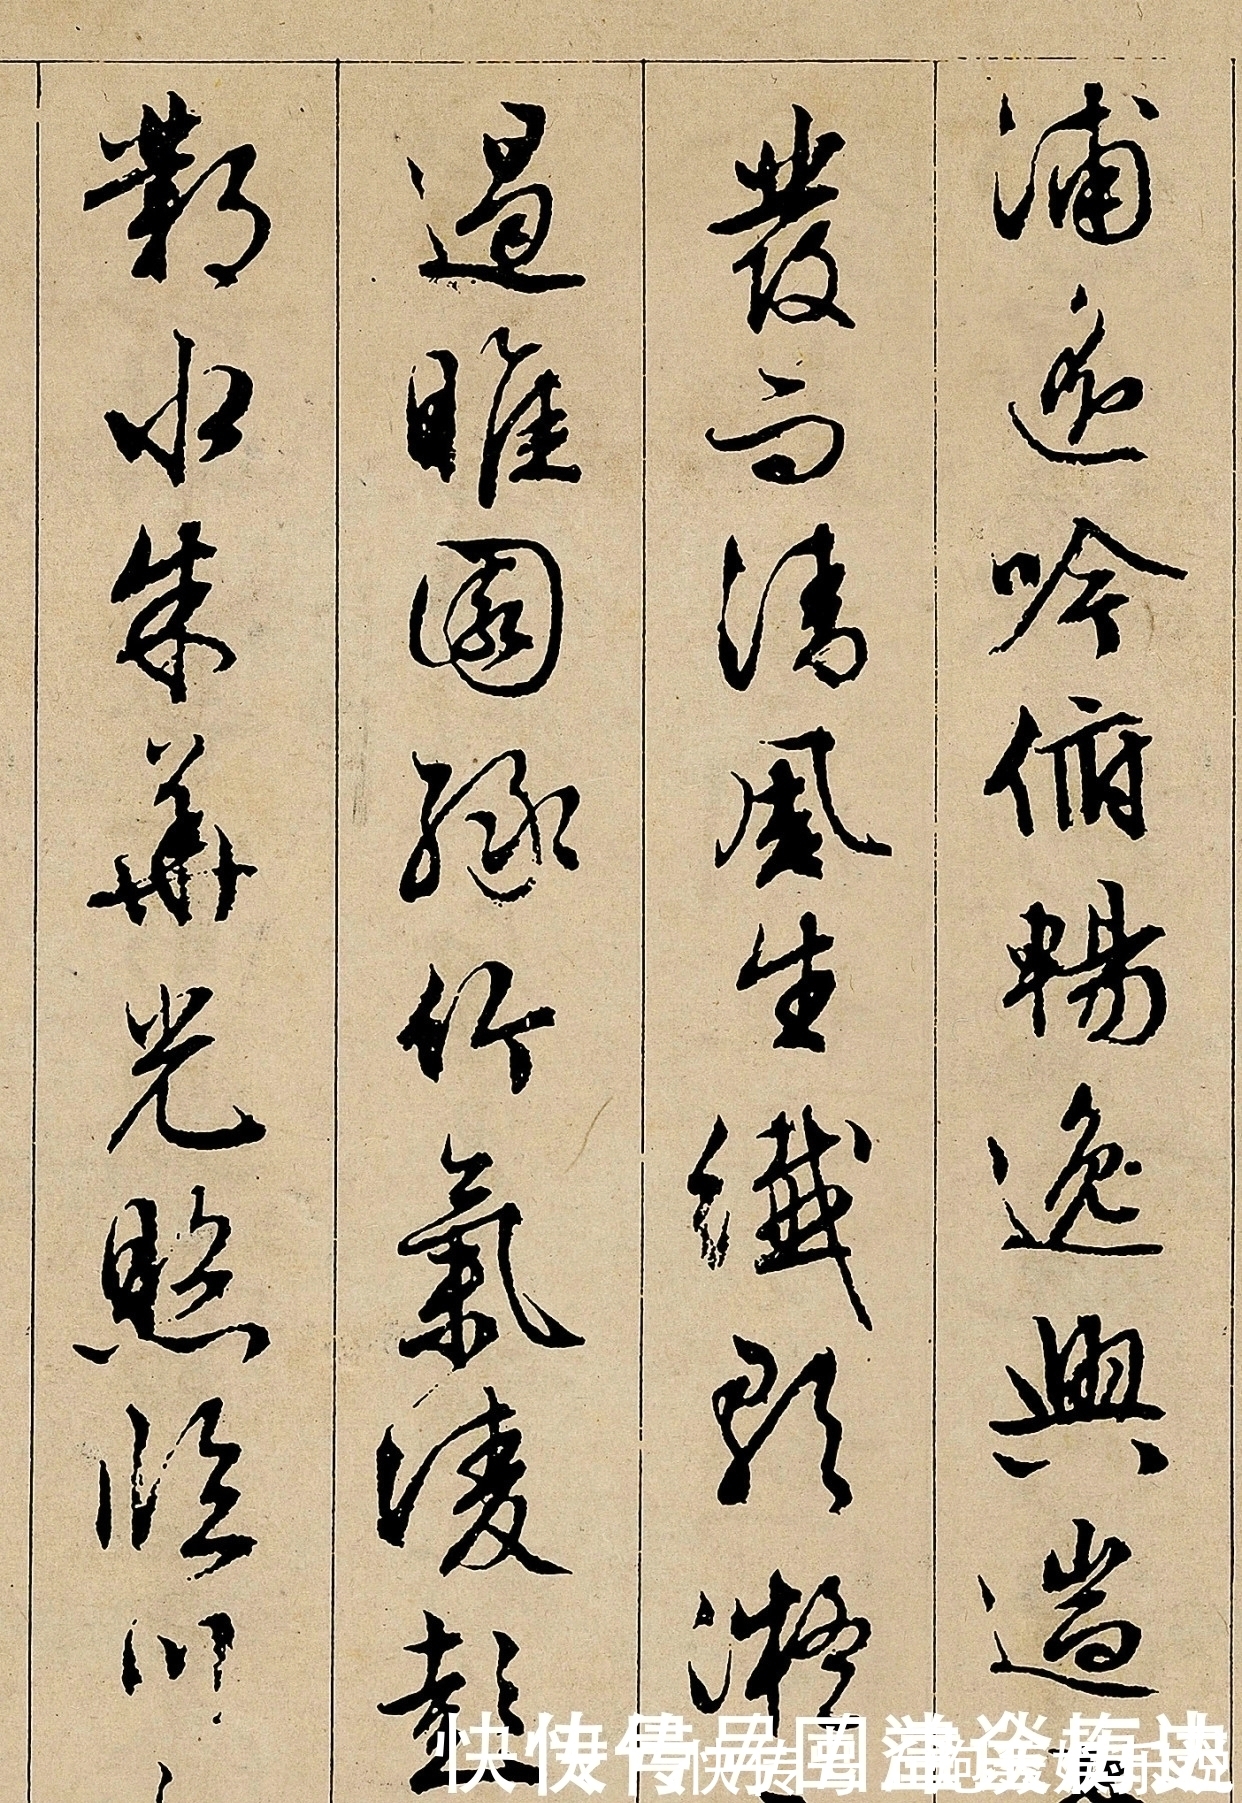 浦遥吟俯暢逸興遄
發而清風生纖歌凝
遏睢園綠竹氣淩彭
鄴水朱華光照臨川